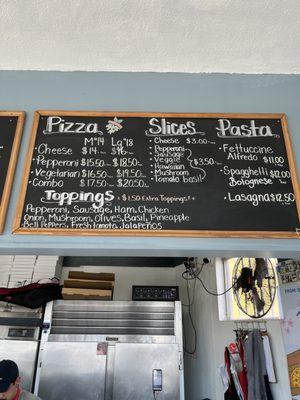 Pizza
M"14 La"18
• Cheese $14.- $16.-
• Pepperoni $15.50 $18.50
• Vegetarian $16.50 $19.50
• Combo $17.50 $20.50
Toppings $1.50 Extra Toppings
Pepperoni, Sausage, Ham, Chicken
Onion, Mushroom, Olives, Basil, Pineapple
Bell Peppers, Fresh Tomato, Jalapeños
Slices
• Cheese $3.00
• Pepperoni
• Sausage
• Veggie $3.50
• Hawaiian
• Mushroom
• Tomato basil
Pasta
• Fettuccine
Alfredo $11.00
• Spaghetti $12.00
Bolognese $11.00
• Lasagna $12.50